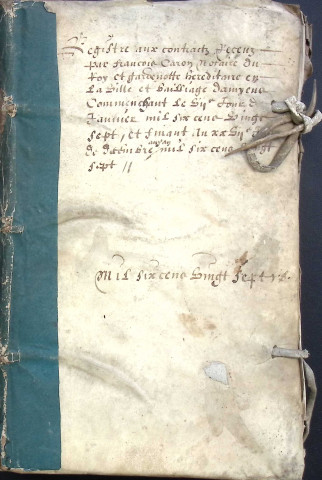 Registre aux contractz Receuz
par francois Caron Notaire du
Roy et gardenotte hereditaire en
La Ville et bailliage damyens
Commenchant Le Jour de
Januier mil six cens vingt
sept, et finant Au xx
de decembre mil six cens vingt
sept //
Mil six cens vingt sept